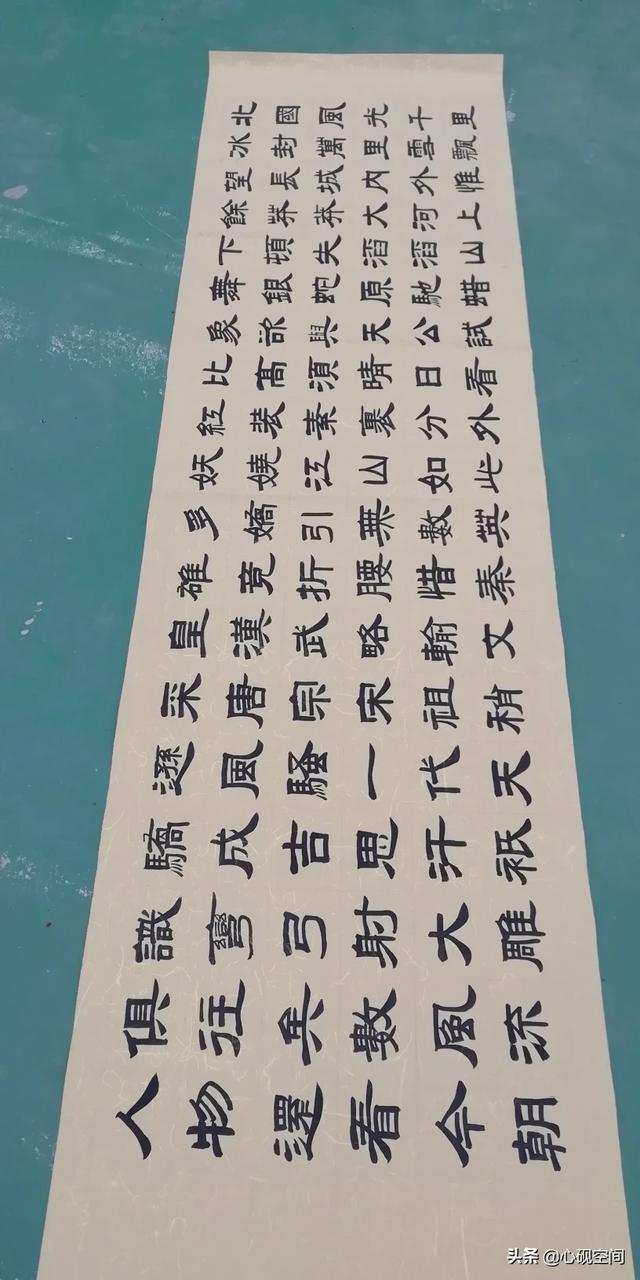 北國風光千里
冰封萬里雪飄
望長城內外惟
餘莽莽大河上
下頓失滔滔山
舞銀蛇原馳蜡
象欲與天公試
比高須晴日看
紅装素裹分外
妖嬈江山如此
多嬌引無數英
雄竟折腰惜秦
皇漢武略輸文
采唐宗宋祖稍
遜風騷一代天
驕成吉思汗祇
識彎弓射大雕
俱往矣數風流
人物還看今朝
头条 @心砚空间